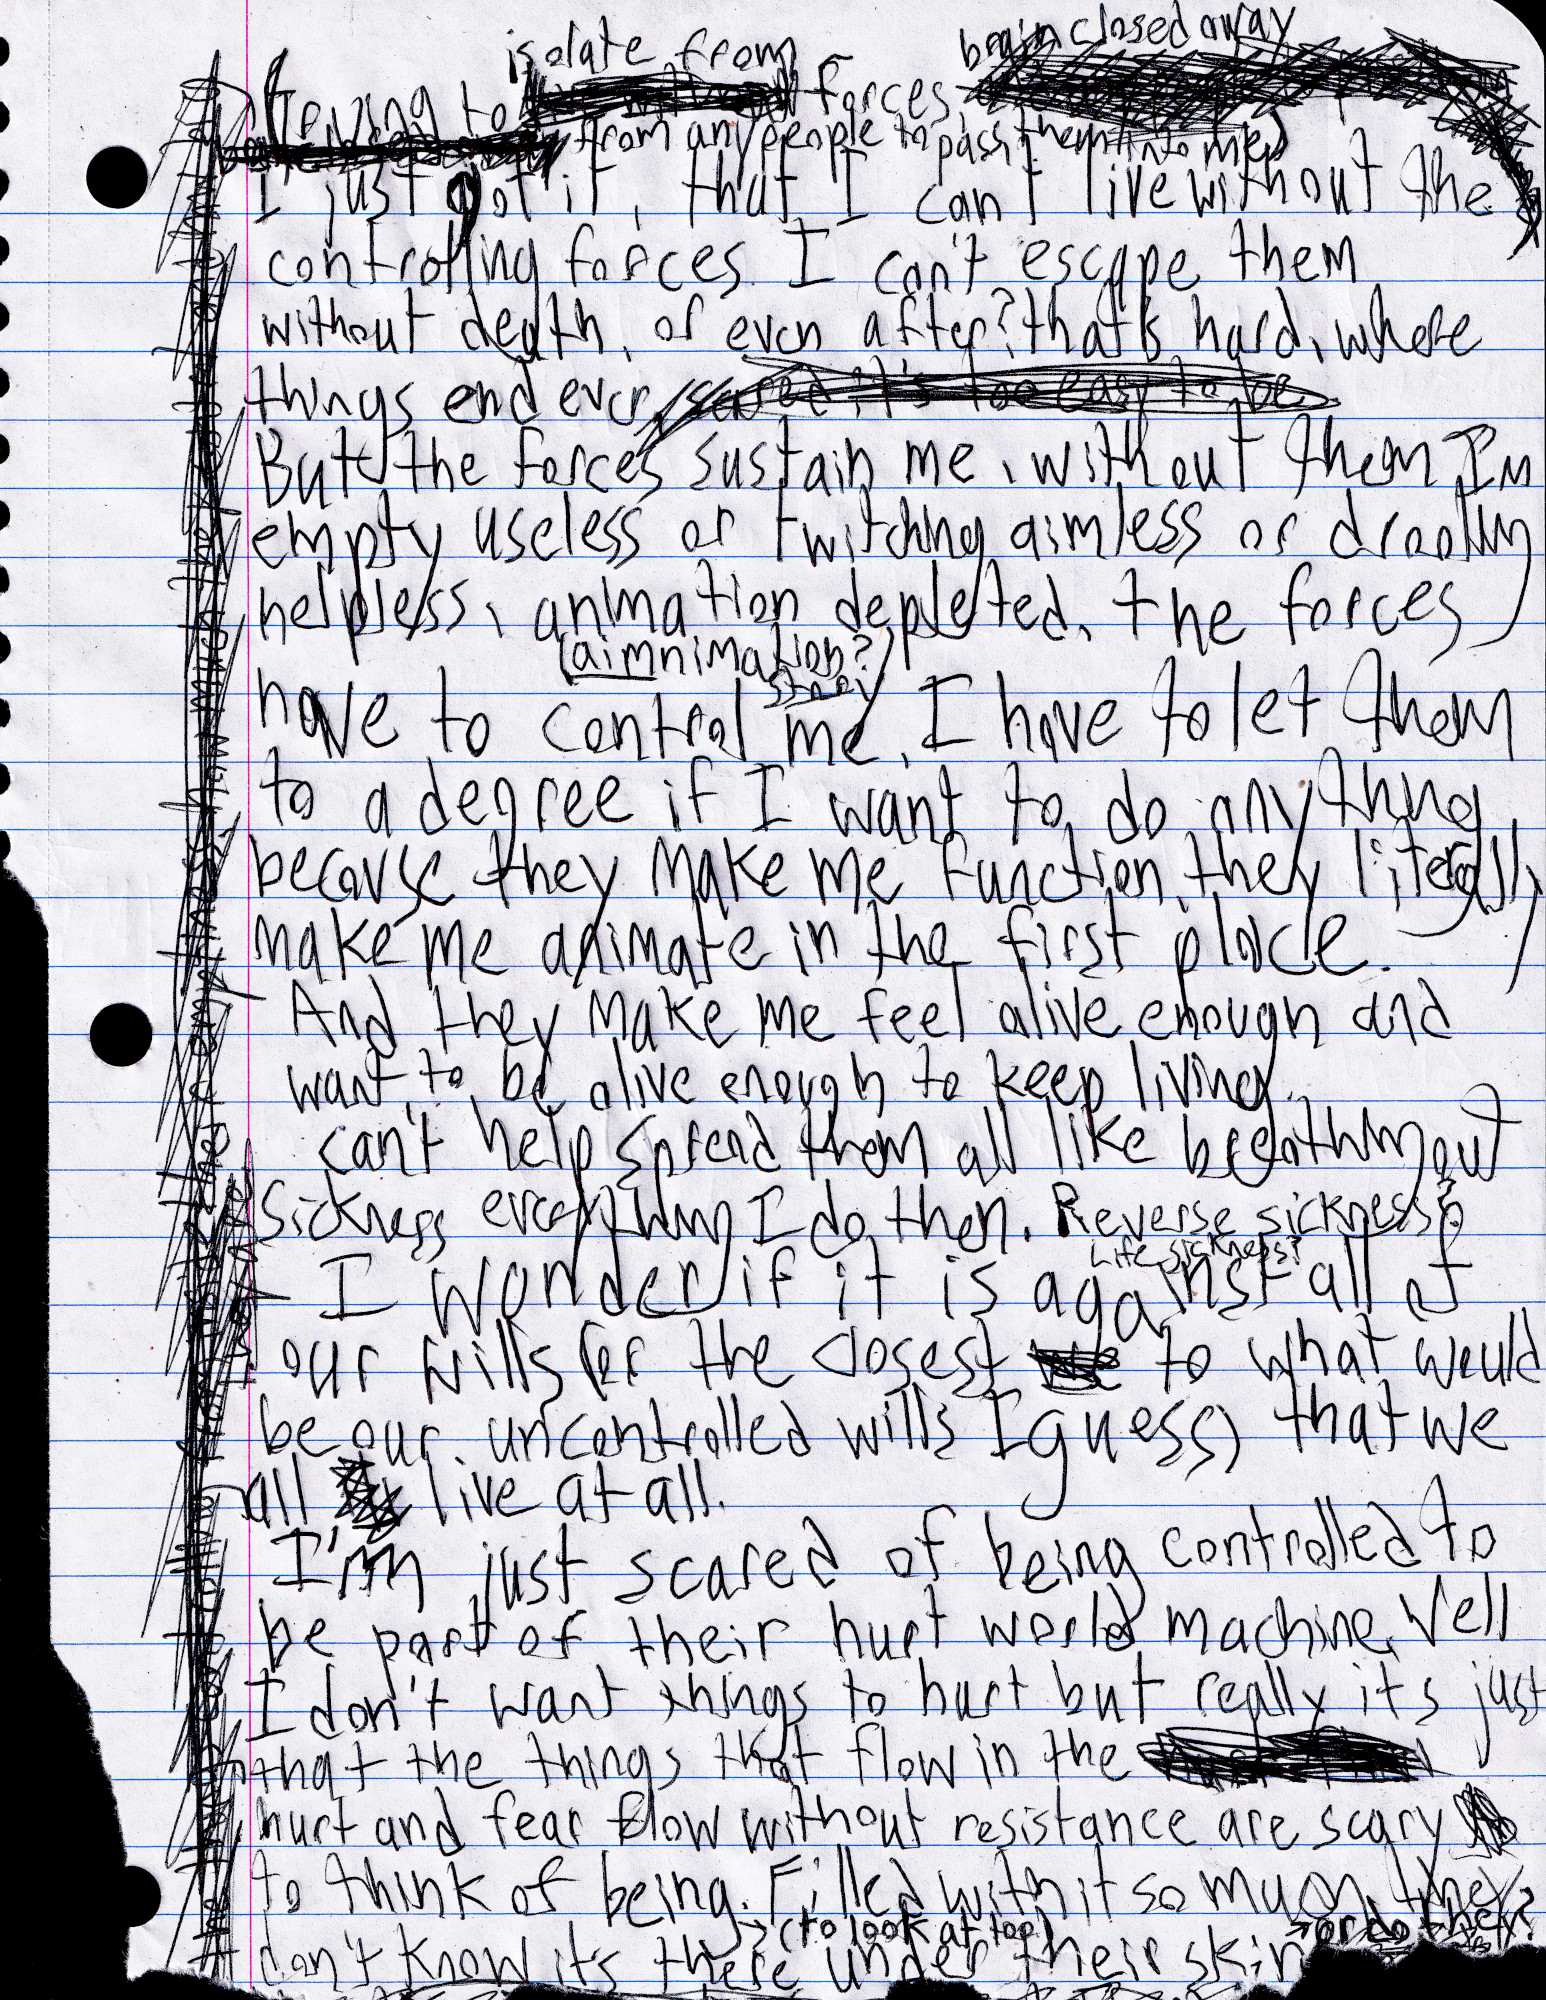 isolate from
brain closed away
trying to forces
from any people to pass them into me)
I just got it, that I can't live without the
controlling forces I can't escape them
without death, or even after? that's hard, where
things end ever, scared, it's too easy to be
But the forces sustain me, without them Im
empty useless or twitching aimless or drooling
helpless, animation depleted, the forces
(aimnimation?)
story
have to control me, I have to let them
to a degree if I want to do anything
because they make me function, they literally
make me animate in the first place.
And they make me feel alive enough and
want to be alive enough to keep living.
can't help spread them all like breathing out
sickness everything I do then. Reverse sickness?
Life sickness?
I wonder if it is against all of
our wills (or the closest to what would
be our uncontrolled wills I guess) that we
all live at all.
I'm just scared of being controlled to
be part of their hurt world machine, Well
I don't want things to hurt but really it's just
that the things that flow in the
hurt and fear flow without resistance are scary
to think of being. Filled with it so much they
→ (to look at too) → or do they?
don't know it's there under their skin